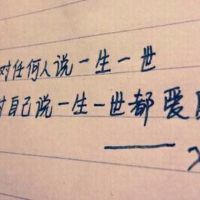 对任何人说一生一世
对自己说一生一世都爱
——